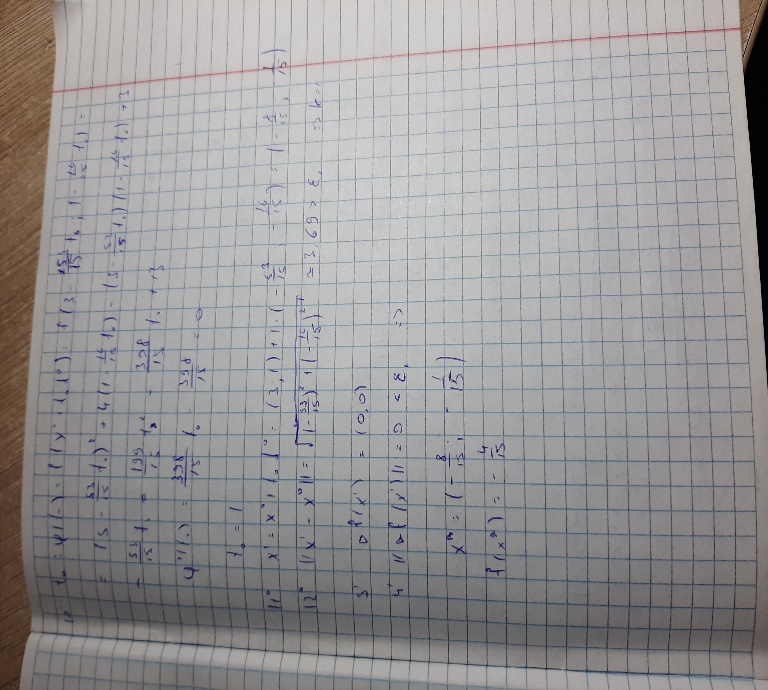 10 t₀ = φ(t₀) = f(x⁰ + t₀d⁰) = f(3 - 53/15 t₀; 1 - 16/15 t₀) =
= (3 - 53/15 t₀)² + 4(1 - 16/15 t₀)² - (3 - 53/15 t₀)(1 - 16/15 t₀) + 3
- 53/15 t₀ = 199/15 t₀² - 398/15 t₀ + 13
φ'(t₀) = 398/15 t₀ - 398/15 = 0
t₀ = 1
11⁰ x¹ = x⁰ + t₀d⁰ = (3, 1) + 1·(-53/15, -16/15) = (-8/15, -1/15)
12⁰ ||x¹ - x⁰|| = √((-53/15)² + (-16/15)²) ≈ 3,69 > ε₂ ⇒ k=1
3' ∇f(x¹) = (0,0)
4' ||∇f(x¹)|| = 0 < ε₁ ⇒
x* = (-8/15, -1/15)
f(x*) = -4/15